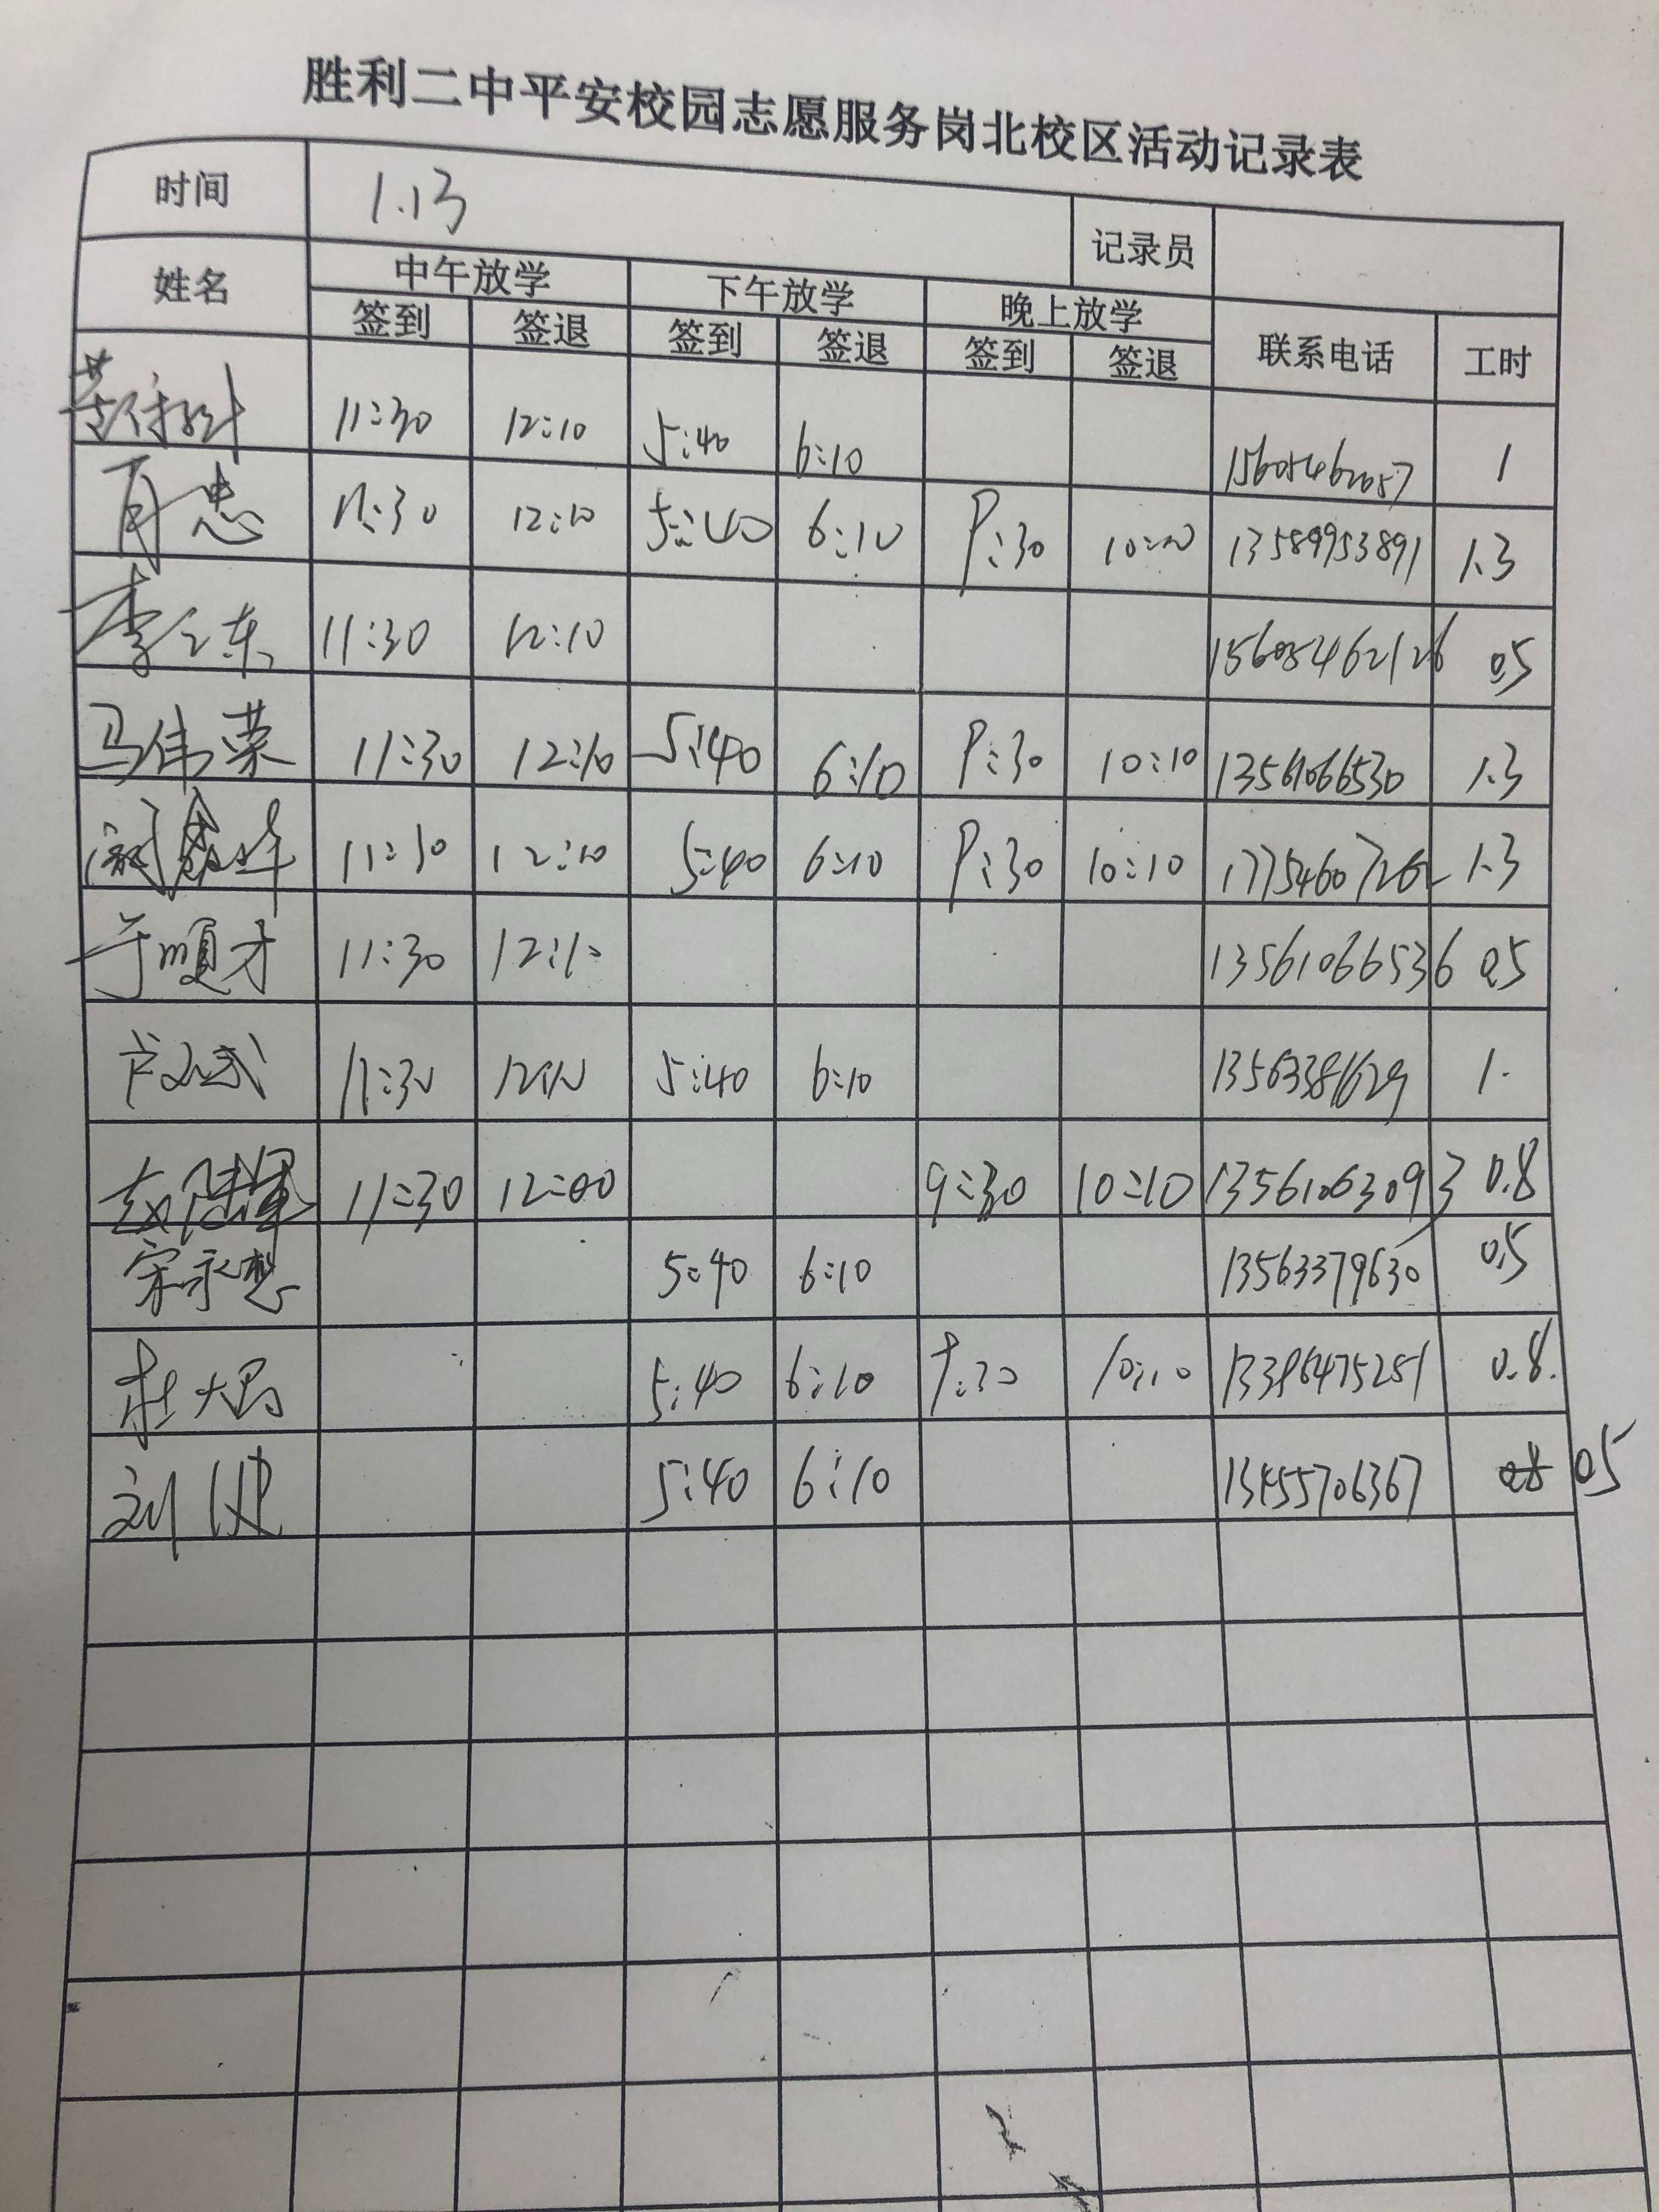 胜利二中平安校园志愿服务岗北校区活动记录表
时间 1.13 记录员
姓名 中午放学 下午放学 晚上放学 联系电话 工时
签到 签退 签到 签退 签到 签退
11:30 12:10 5:40 6:10 15605462057 1
肖忠 11:30 12:10 5:40 6:10 9:30 10:10 13589953891 1.3
李仁东 11:30 12:10 15605462126 0.5
马伟荣 11:30 12:10 5:40 6:10 9:30 10:10 13561066530 1.3
11:30 12:10 5:40 6:10 9:30 10:10 17754607262 1.3
于顺才 11:30 12:10 13561066536 0.5
卢文武 11:30 12:10 5:40 6:10 13563381629 1.
赵陆军 11:30 12:00 9:30 10:10 13561063093 0.8
宋永想 5:40 6:10 13563379630 0.5
杜大昌 5:40 6:10 9:30 10:10 13396475251 0.8.
刘健 5:40 6:10 13455706367 0.8 0.5